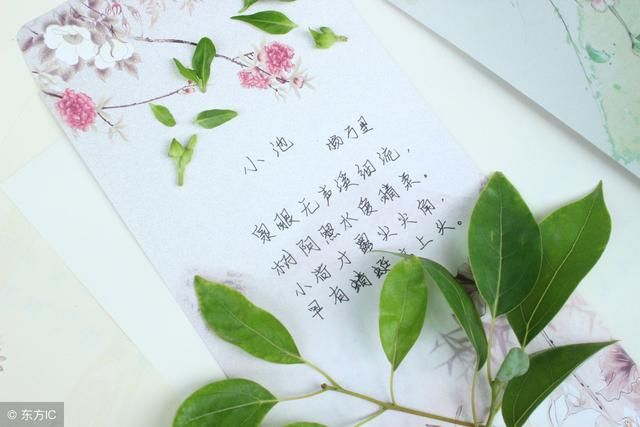 小池 杨万里
泉眼无声溪细流，
树阴照水爱晴柔。
小荷才露尖尖角，
早有蜻蜓立上头。
东方IC